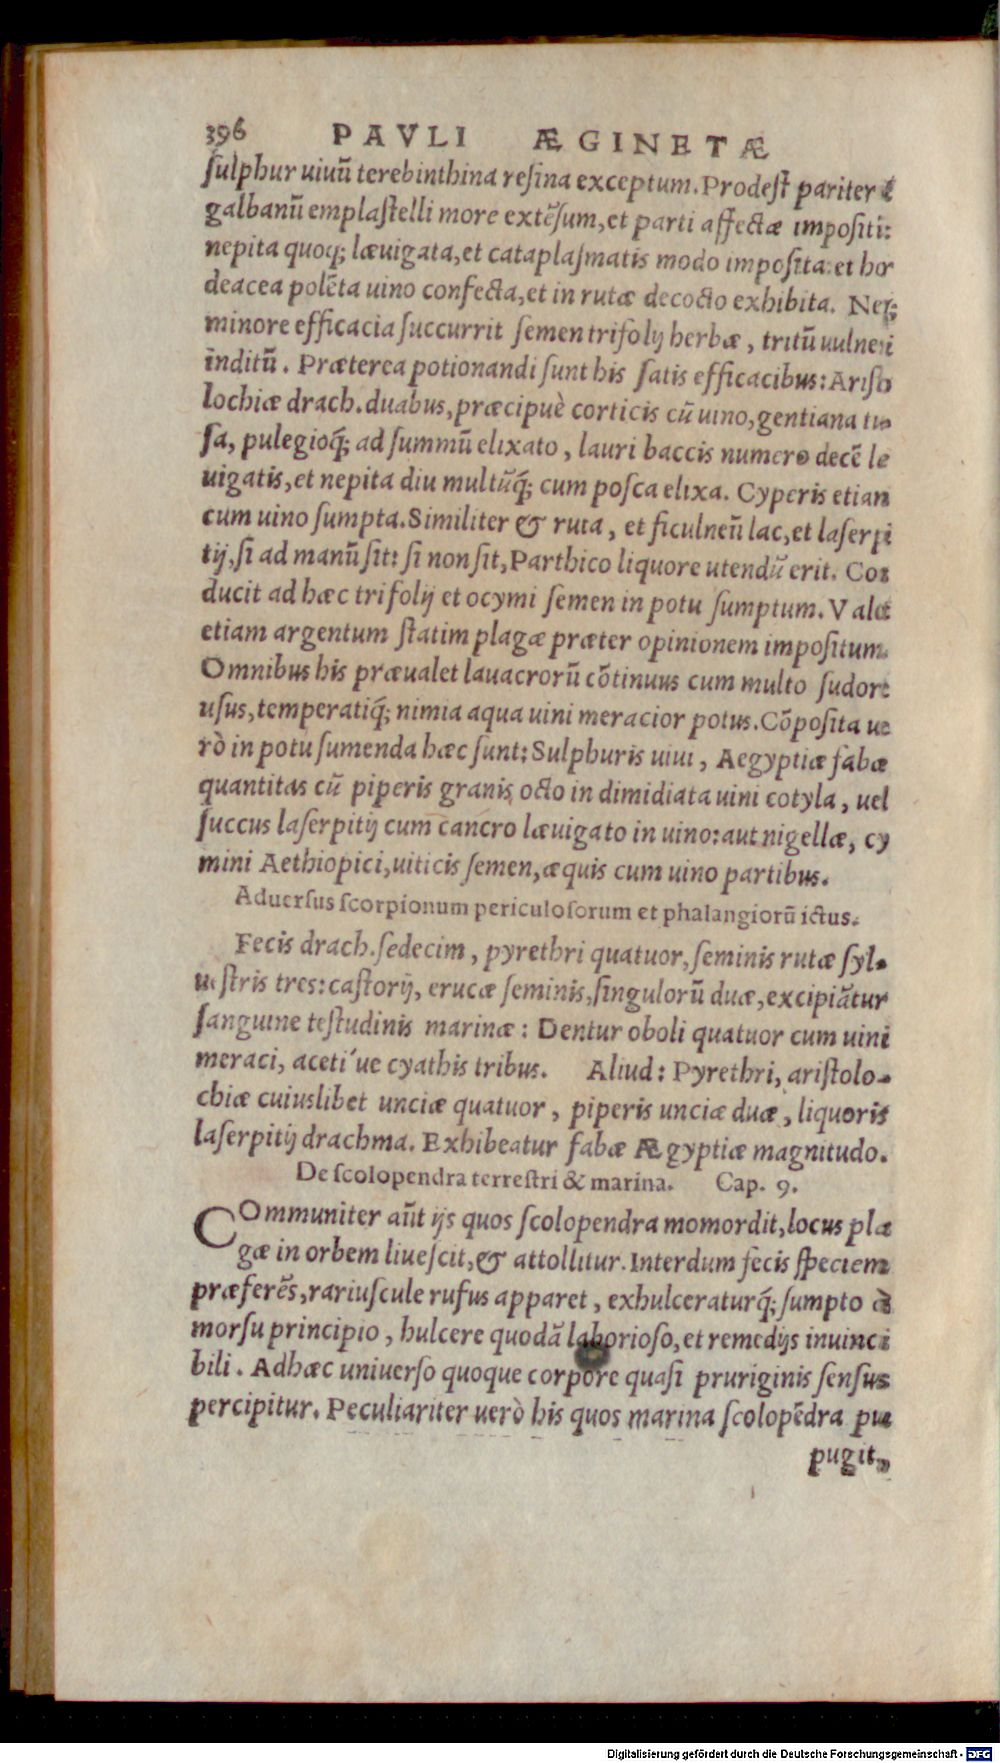 396 PAVLI ÆGINETÆ
ſulphur uiuū terebinthina reſina exceptum. Prodeſt pariter &
galbanū emplaſtelli more extēſum, et parti affectæ impoſitū:
nepita quoq; læuigata, et cataplaſmatis modo impoſita: et hor
deacea polēta uino confecta, et in rutæ decocto exhibita. Neq;
minore efficacia ſuccurrit ſemen trifolij herbæ, tritū uulneri
inditū. Præterea potionandi ſunt his ſatis efficacibus: Ariſto
lochiæ drach. duabus, præcipuè corticis cū uino, gentiana tu-
ſa, pulegioq́; ad ſummū elixato, lauri baccis numero decē le
uigatis, et nepita diu multūq́; cum poſca elixa. Cyperis etiam
cum uino ſumpta. Similiter & ruta, et ficulneū lac, et laſerpi
tij, ſi ad manū ſit: ſi non ſit, Parthico liquore utendū erit. Con
ducit ad hæc trifolij et ocymi ſemen in potu ſumptum. Valet
etiam argentum ſtatim plagæ præter opinionem impoſitum.
Omnibus his præualet lauacrorū cōtinuus cum multo ſudore
uſus, temperatiq́; nimia aqua uini meracior potus. Cōpoſita ue
rò in potu ſumenda hæc ſunt: Sulphuris uiui, Aegyptiæ fabæ
quantitas cū piperis granis octo in dimidiata uini cotyla, uel
ſuccus laſerpitij cum cancro læuigato in uino: aut nigellæ, cy
mini Aethiopici, uiticis ſemen, æquis cum uino partibus.
Aduerſus ſcorpionum periculoſorum et phalangiorū ictus.
Fecis drach. ſedecim, pyrethri quatuor, ſeminis rutæ ſyl-
ueſtris tres: caſtorij, erucæ ſeminis, ſingulorū duæ, excipiātur
ſanguine teſtudinis marinæ: Dentur oboli quatuor cum uini
meraci, aceti´ue cyathis tribus. Aliud: Pyrethri, ariſtolo-
chiæ cuiuslibet unciæ quatuor, piperis unciæ duæ, liquoris
laſerpitij drachma. Exhibeatur fabæ Ægyptiæ magnitudo.
De ſcolopendra terreſtri & marina. Cap. 9.
COmmuniter aūt ijs quos ſcolopendra momordit, locus pla
gæ in orbem liueſcit, & attollitur. Interdum fecis ſpeciem
præferēs, rariuſcule rufus apparet, exhulceraturq́; ſumpto à
morſu principio, hulcere quodā laborioſo, et remedijs inuinci
bili. Adhæc uniuerſo quoque corpore quaſi pruriginis ſenſus
percipitur. Peculiariter uerò his quos marina ſcolopēdra pu
pugit,
Digitalisierung gefördert durch die Deutsche Forschungsgemeinschaft - DFG